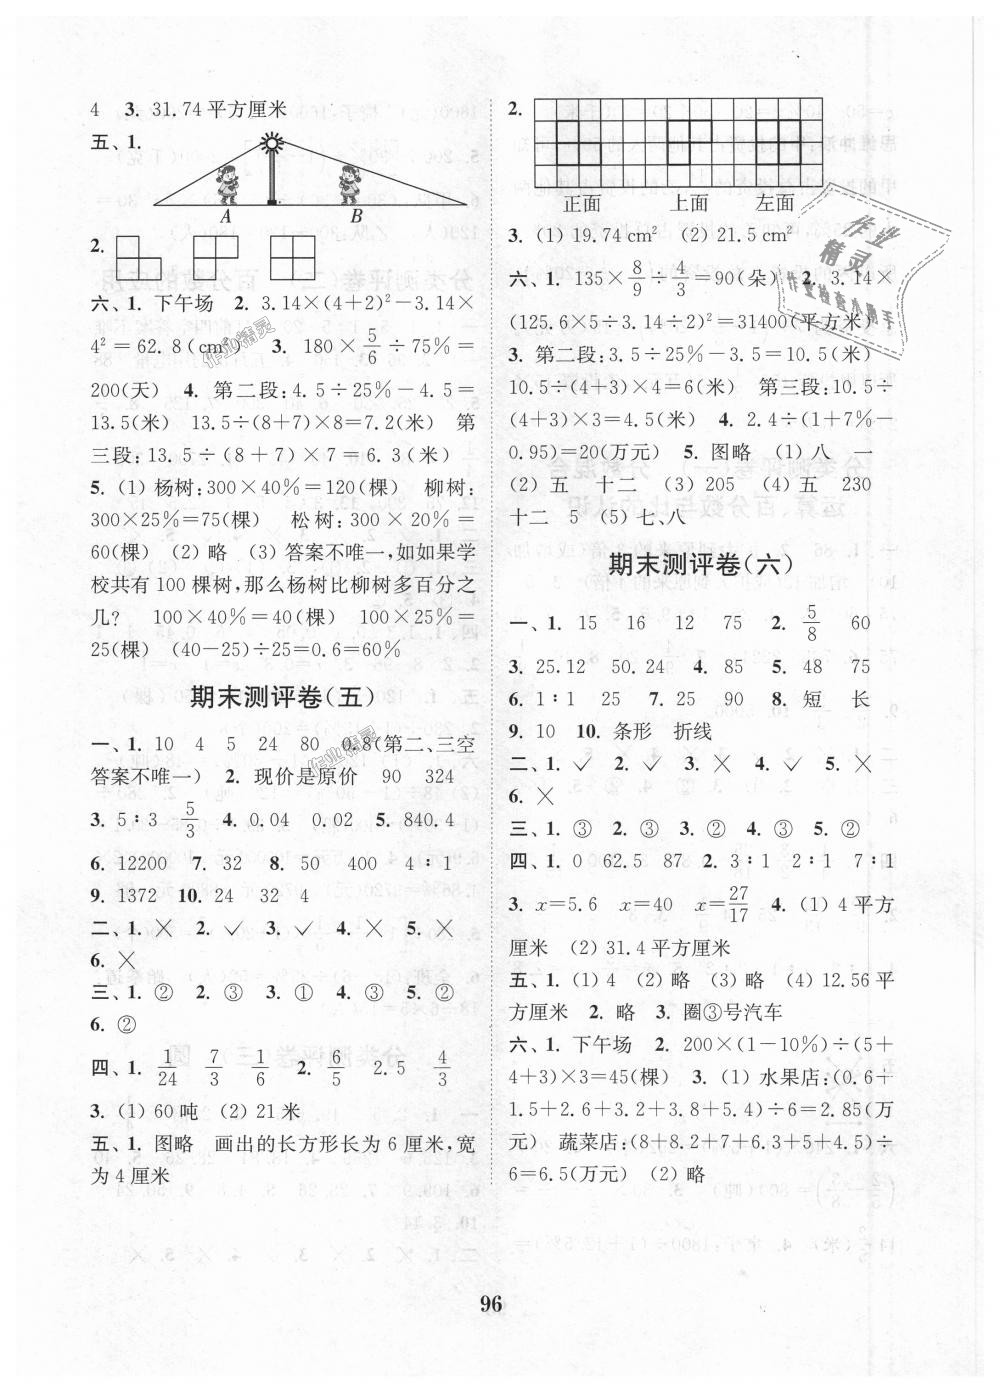 4 3. 31.74平方厘米
五、1.
A B
2.
六、1. 下午场 2. 3.14×(4+2)²-3.14×
4²=62.8(cm²) 3. 180×5/6÷75%=
200(天) 4. 第二段:4.5÷25%-4.5=
13.5(米) 13.5÷(8+7)×8=7.2(米) 第
三段:13.5÷(8+7)×7=6.3(米)
5. (1) 杨树:300×40%=120(棵) 柳树:
300×25%=75(棵) 松树:300×20%=
60(棵) (2) 略 (3) 答案不唯一,如如果学
校共有100棵树,那么杨树比柳树多百分之
几? 100×40%=40(棵) 100×25%=
25(棵) (40-25)÷25=0.6=60%
期末测评卷(五)
一、1. 10 4 5 24 80 0.8(第二、三空
答案不唯一) 2. 现价是原价 90 324
3. 5∶3 5/3 4. 0.04 0.02 5. 840.4
6. 12200 7. 32 8. 50 400 4∶1
9. 1372 10. 24 32 4
二、1. × 2. ✓ 3. ✓ 4. × 5. ×
6. ×
三、1. ② 2. ③ 3. ① 4. ③ 5. ②
6. ②
四、1. 1/24 7/3 1/6 2. 6/5 2.5 4/3
3. (1) 60吨 (2) 21米
五、1. 图略 画出的长方形长为6厘米,宽
为4厘米
2.
正面 上面 左面
3. (1) 19.74 cm² (2) 21.5 cm²
六、1. 135×8/9÷4/3=90(朵) 2. 3.14×
(125.6×5÷3.14÷2)²=31400(平方米)
3. 第二段:3.5÷25%-3.5=10.5(米)
10.5÷(4+3)×4=6(米) 第三段:10.5÷
(4+3)×3=4.5(米) 4. 2.4÷(1+7%-
0.95)=20(万元) 5. 图略 (1) 八 一
(2) 五 十二 (3) 205 (4) 五 230
十二 5 (5) 七、八
期末测评卷(六)
一、1. 15 16 12 75 2. 5/8 60
3. 25.12 50.24 4. 85 5. 48 75
6. 1∶1 25 7. 25 90 8. 短 长
9. 10 10. 条形 折线
二、1. ✓ 2. ✓ 3. × 4. ✓ 5. ×
6. ×
三、1. ③ 2. ③ 3. ② 4. ③ 5. ②
四、1. 0 62.5 87 2. 3∶1 2∶1 7∶1
3. x=5.6 x=40 x=27/17 4. (1) 4平方
厘米 (2) 31.4平方厘米
五、1. (1) 4 (2) 略 (3) 略 (4) 12.56平
方厘米 2. 略 3. 圈③号汽车
六、1. 下午场 2. 200×(1-10%)÷(5+
4+3)×3=45(棵) 3. (1) 水果店:(0.6+
1.5+2.6+3.2+3.8+5.4)÷6=2.85(万
元) 蔬菜店:(8+8.2+7+6.3+5+4.5)÷
6=6.5(万元) (2) 略
作业
精灵
96